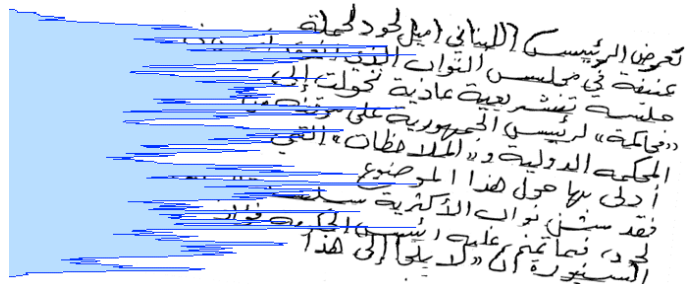 تعرض الرئيس اللبناني اميل لحود لحملة
عنيفة في مجلس النواب الذي
جلسة تشريعية عادية تحولت إلى
«محاكمة» لرئيس الجمهورية على موقفه
المحكمه الدولية و«الملاحظات» التي
أدلى بها حول هذا الموضوع
فقد شن نواب الأكثرية
لحود، فيما تمنى عليه رئيس الحكومة فؤاد
السنيورة أن «لا يلجأ إلى هذا